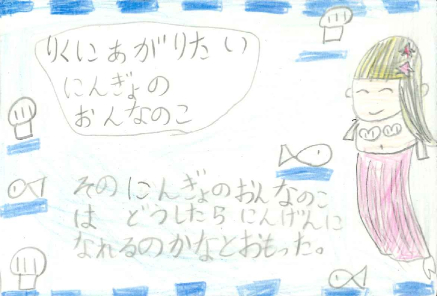 りくにあがりたい
にんぎょの
おんなのこ
そのにんぎょのおんなのこ
は どうしたら にんげんに
なれるのかなとおもった。